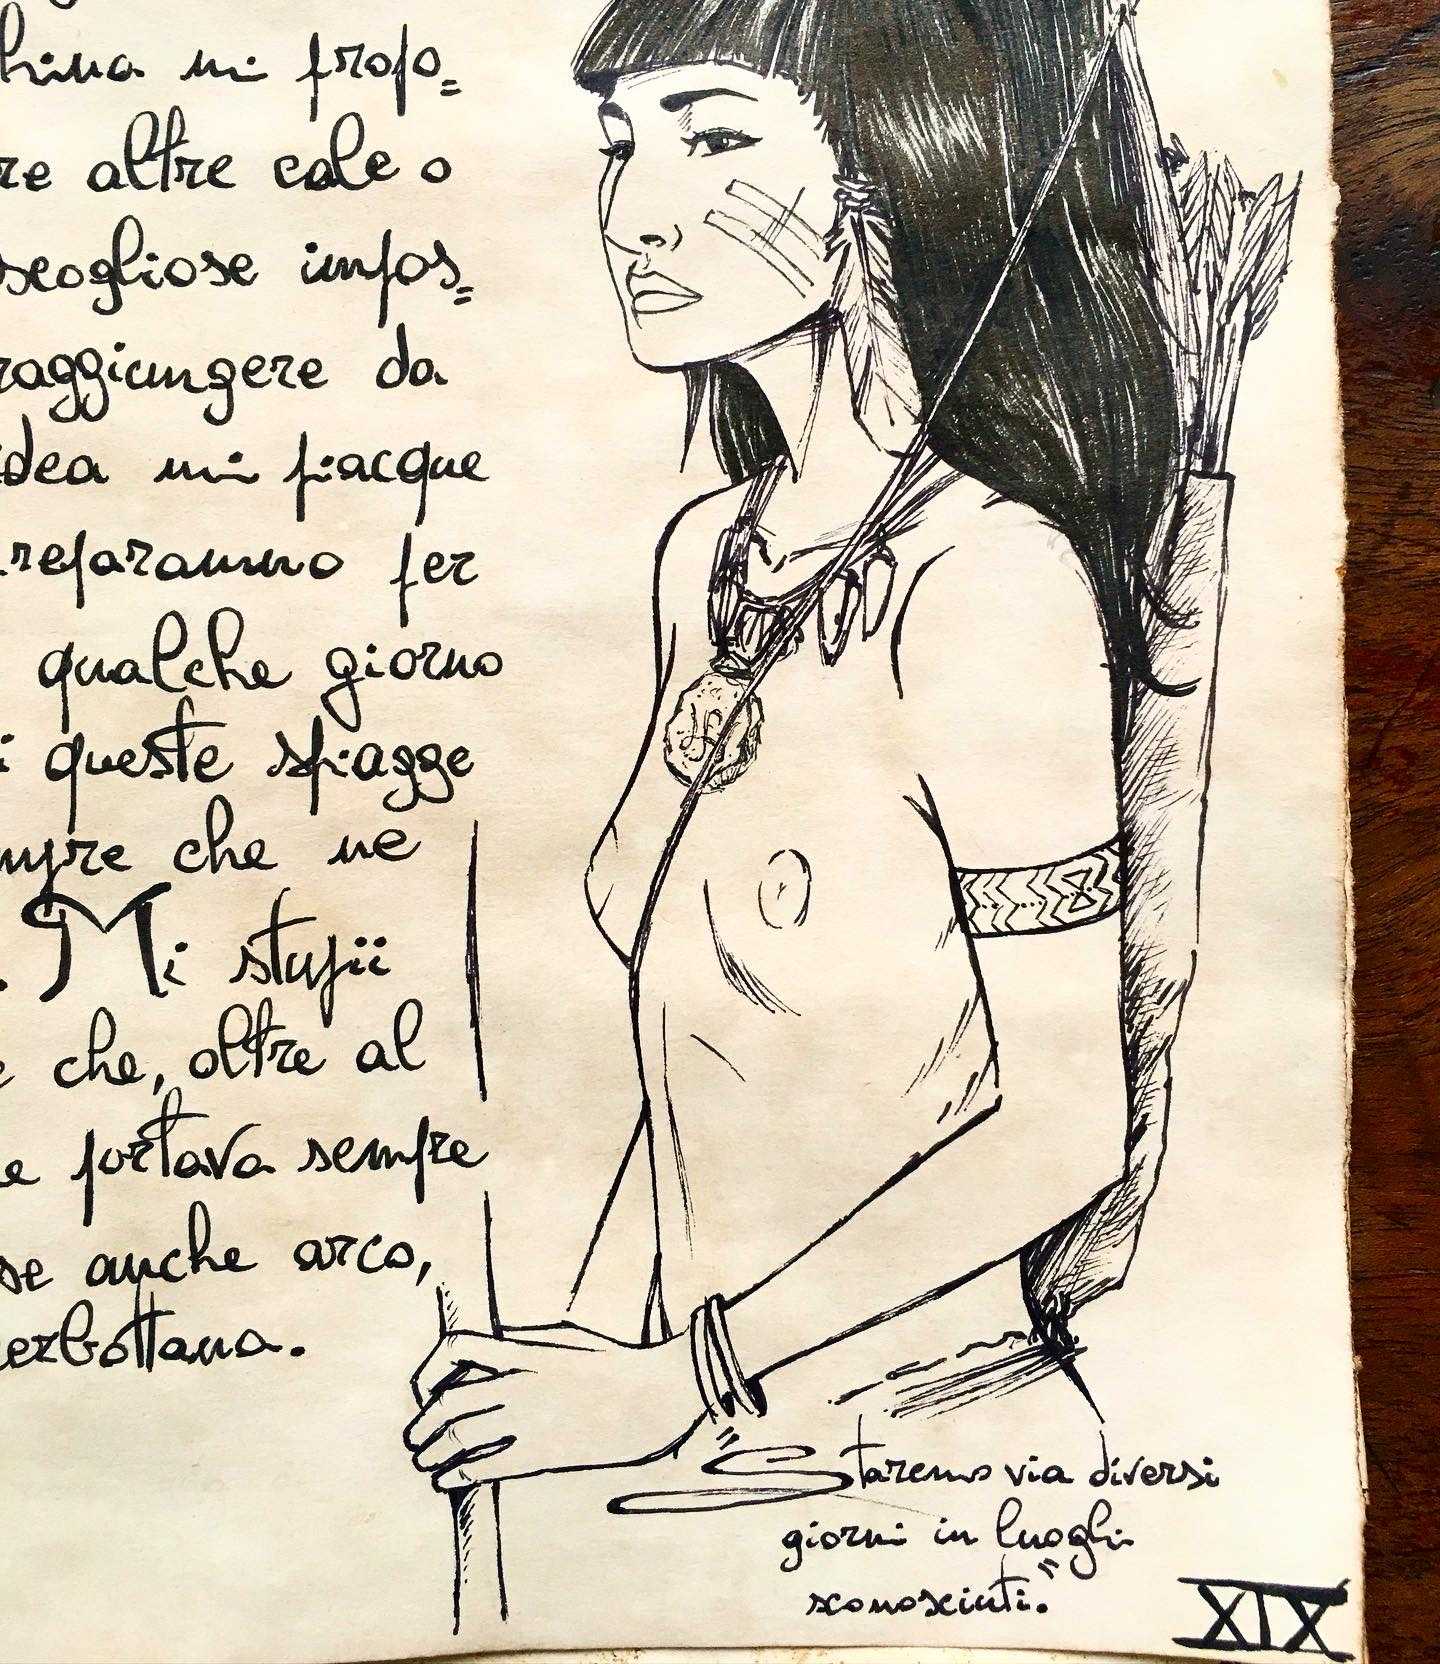 hina mi propo=
re altre cale o
scogliose impos=
raggiungere da
idea mi piacque
repararmmo per
qualche giorno
i queste spiagge
mpre che ne
. Mi stupii
e che, oltre al
e portava sempre
se anche arco,
erbottana.
Staremo via diversi
giorni in luoghi
sconosciuti."
XIX